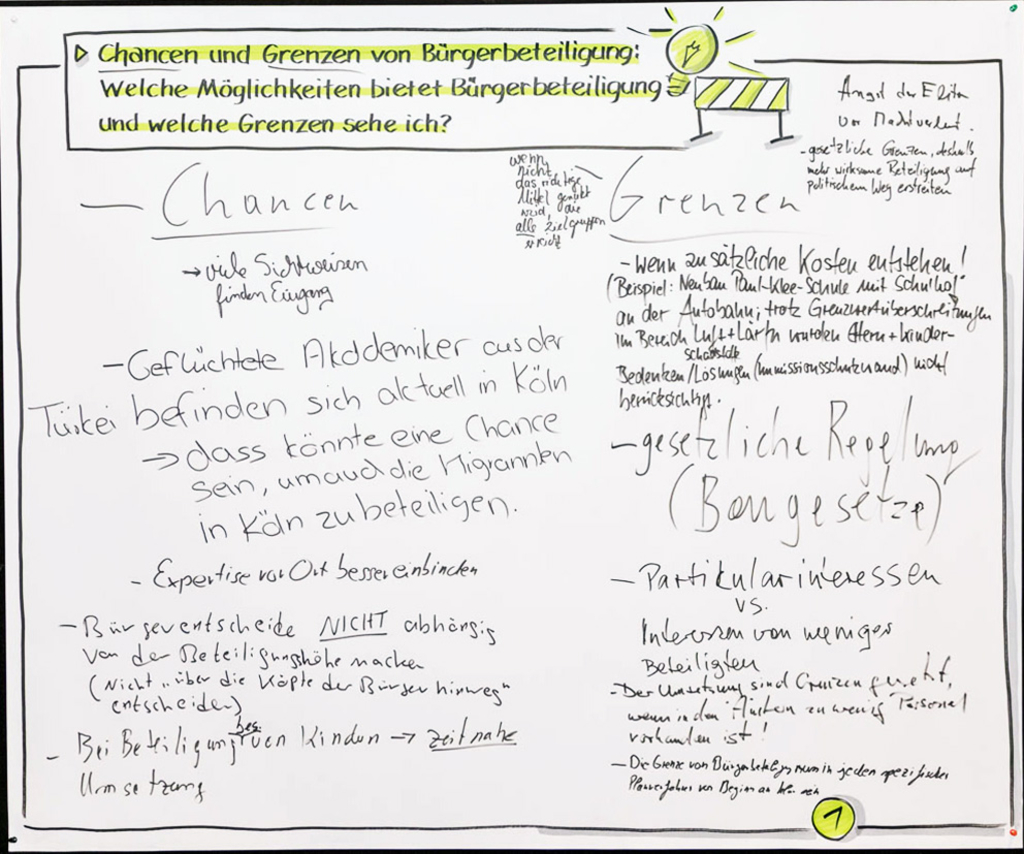 Chancen und Grenzen von Bürgerbeteiligung:
Welche Möglichkeiten bietet Bürgerbeteiligung
und welche Grenzen sehe ich?
Chancen
→ viele Sichtweisen
finden Eingang
- Geflüchtete Akademiker aus der
Türkei befinden sich aktuell in Köln
→ dass könnte eine Chance
sein, um auch die Migrannten
in Köln zu beteiligen.
- Expertise vor Ort besser einbinden
- Bürgerentscheide NICHT abhängig
von der Beteiligungshöhe machen
(Nicht "über die Köpfe der Bürger hinweg"
entscheiden)
- Bei Beteiligung bes. von Kindern → zeitnahe
Umsetzung
Angst der Eliten
vor Machtverlust.
- gesetzliche Grenzen, deshalb
mehr wirksame Beteiligung auf
politischem Weg erstreiten
wenn
nicht
das richtige
Mittel genutzt
wird, die
alle Zielgruppen
erreicht
Grenzen
- wenn zusätzliche Kosten entstehen!
(Beispiel: Neubau Paul-Klee-Schule mit Schulhof
an der Autobahn; trotz Grenzwertüberschreitungen
im Bereich Luft + Lärm wurden Eltern + Kinder-
Bedenken/Lösungen (Immissionsschutzwand) nicht
berücksichtigt.
- gesetzliche Regelung
(Baugesetze)
- Partikularinteressen
vs.
Interessen von weniger
Beteiligten
- Der Umsetzung sind Grenzen gesetzt,
wenn in den Ämtern zu wenig Personal
vorhanden ist!
- Die Grenze von Bürgerbeteiligg muss in jedem spezifischen
von Beginn an klar sein
1